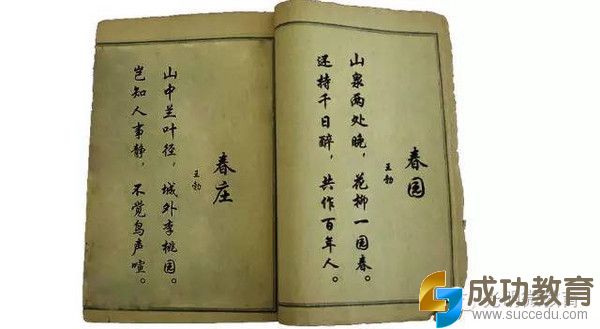 春园
王勃
山泉两处晚，花柳一园春。
还持千日醉，共作百年人。
春庄
王勃
山中兰叶径，城外李桃园。
岂知人事静，不觉鸟声喧。
成功教育
www.succedu.com